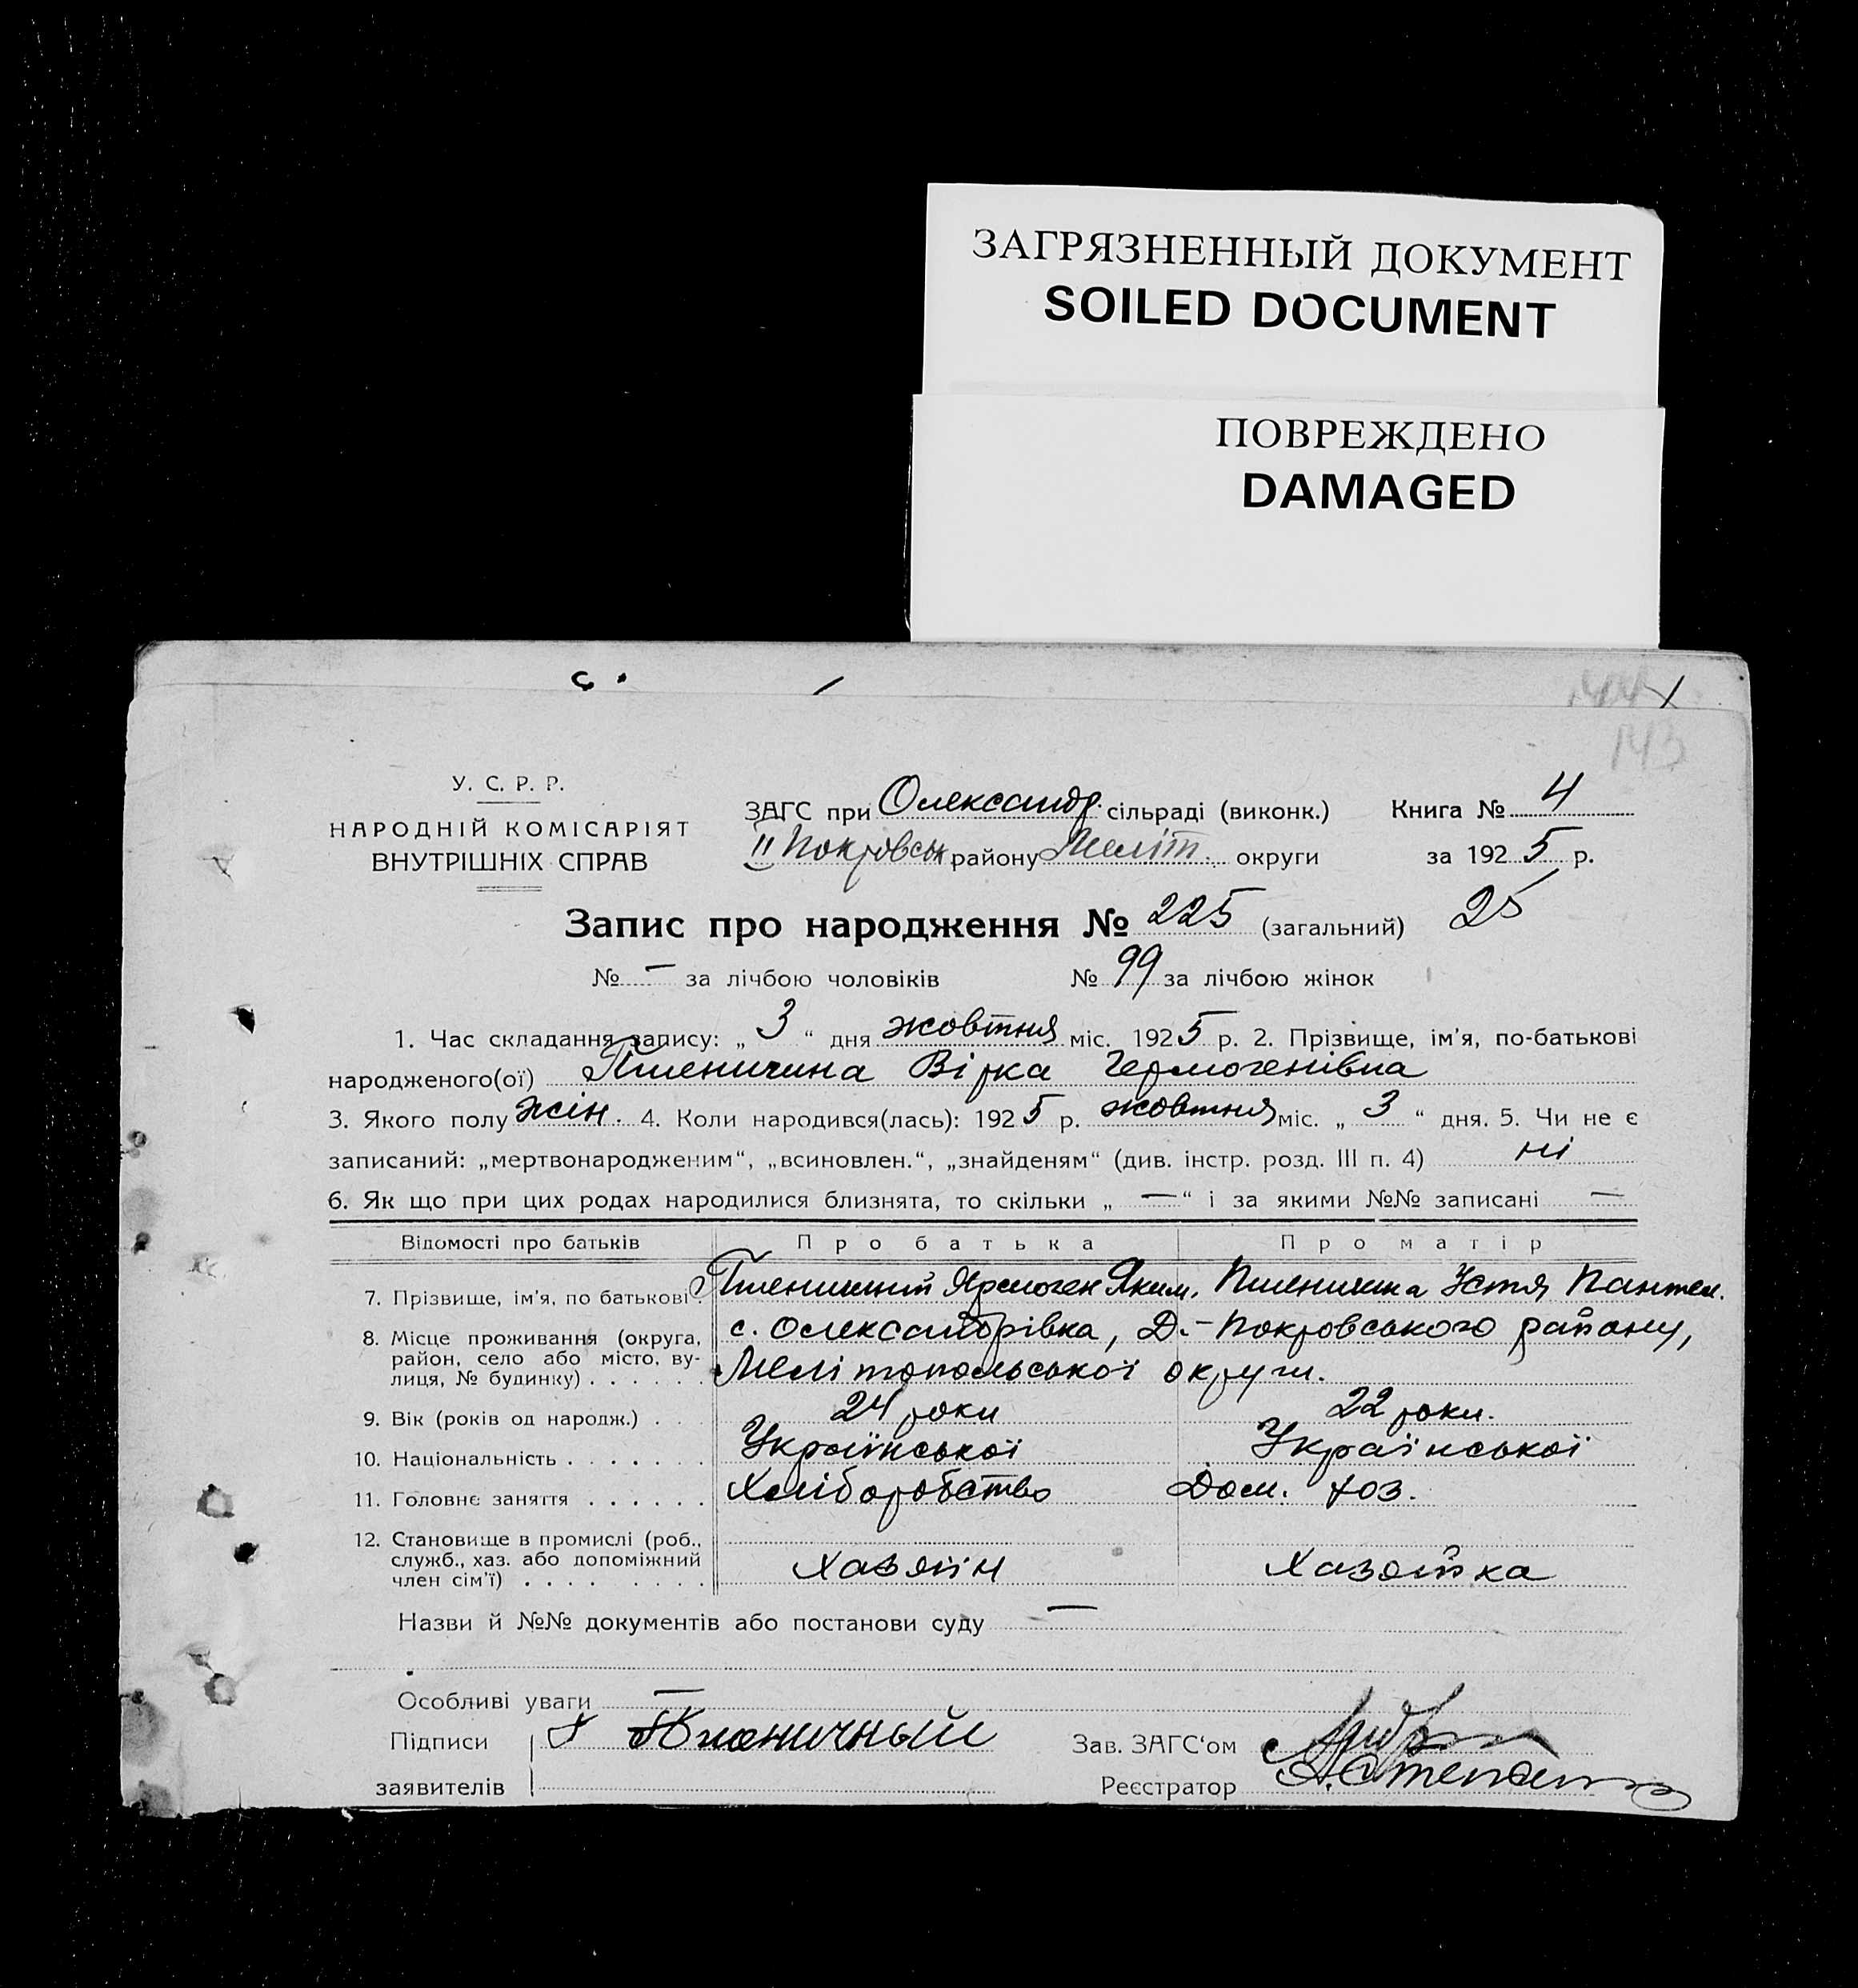 ЗАГРЯЗНЕННЫЙ ДОКУМЕНТ
SOILED DOCUMENT
ПОВРЕЖДЕНО
DAMAGED
143
У. С. Р. Р.
НАРОДНІЙ КОМІСАРІЯТ
ВНУТРІШНІХ СПРАВ
ЗАГС при Олександр. сільраді (виконк.) Книга № 4
Покровськ району Меліт. округи за 1925 р.
Запис про народження № 225 (загальний) 25
№ — за лічбою чоловіків № 99 за лічбою жінок
1. Час складання запису: „ 3 “ дня жовтня міс. 1925 р. 2. Прізвище, ім'я, по-батькові
народженого(ої) Пшенична Вірка Гермогенівна
3. Якого полу жін. 4. Коли народився(лась): 1925 р. жовтня міс. „ 3 “ дня. 5. Чи не є
записаний: „мертвонародженим“, „всиновлен.“, „знайденям“ (див. інстр. розд. III п. 4) ні
6. Як що при цих родах народилися близнята, то скільки „ — “ і за якими №№ записані —
Відомості про батьків Про батька Про матір
7. Прізвище, ім'я, по батькові . Пшеничний Ярмоген Яким. Пшенична Устя Пантел.
8. Місце проживання (округа, район, село або місто, вулиця, № будинку) . . . . . . с. Олександрівка, Д.-Покровського району,
Мелітопольської округи.
9. Вік (років од народж.) . . 24 роки 22 роки.
10. Національність . . . . . . . Української Української
11. Головнє заняття . . . . . . Хліборобство Дом. хоз.
12. Становище в промислі (роб., служб., хаз. або допоміжний член сім'ї) . . . . . . . . Хазяїн Хазяйка
Назви й №№ документів або постанови суду —
Особливі уваги —
Підписи Пшеничный Зав. ЗАГС'ом
заявителів Реєстратор